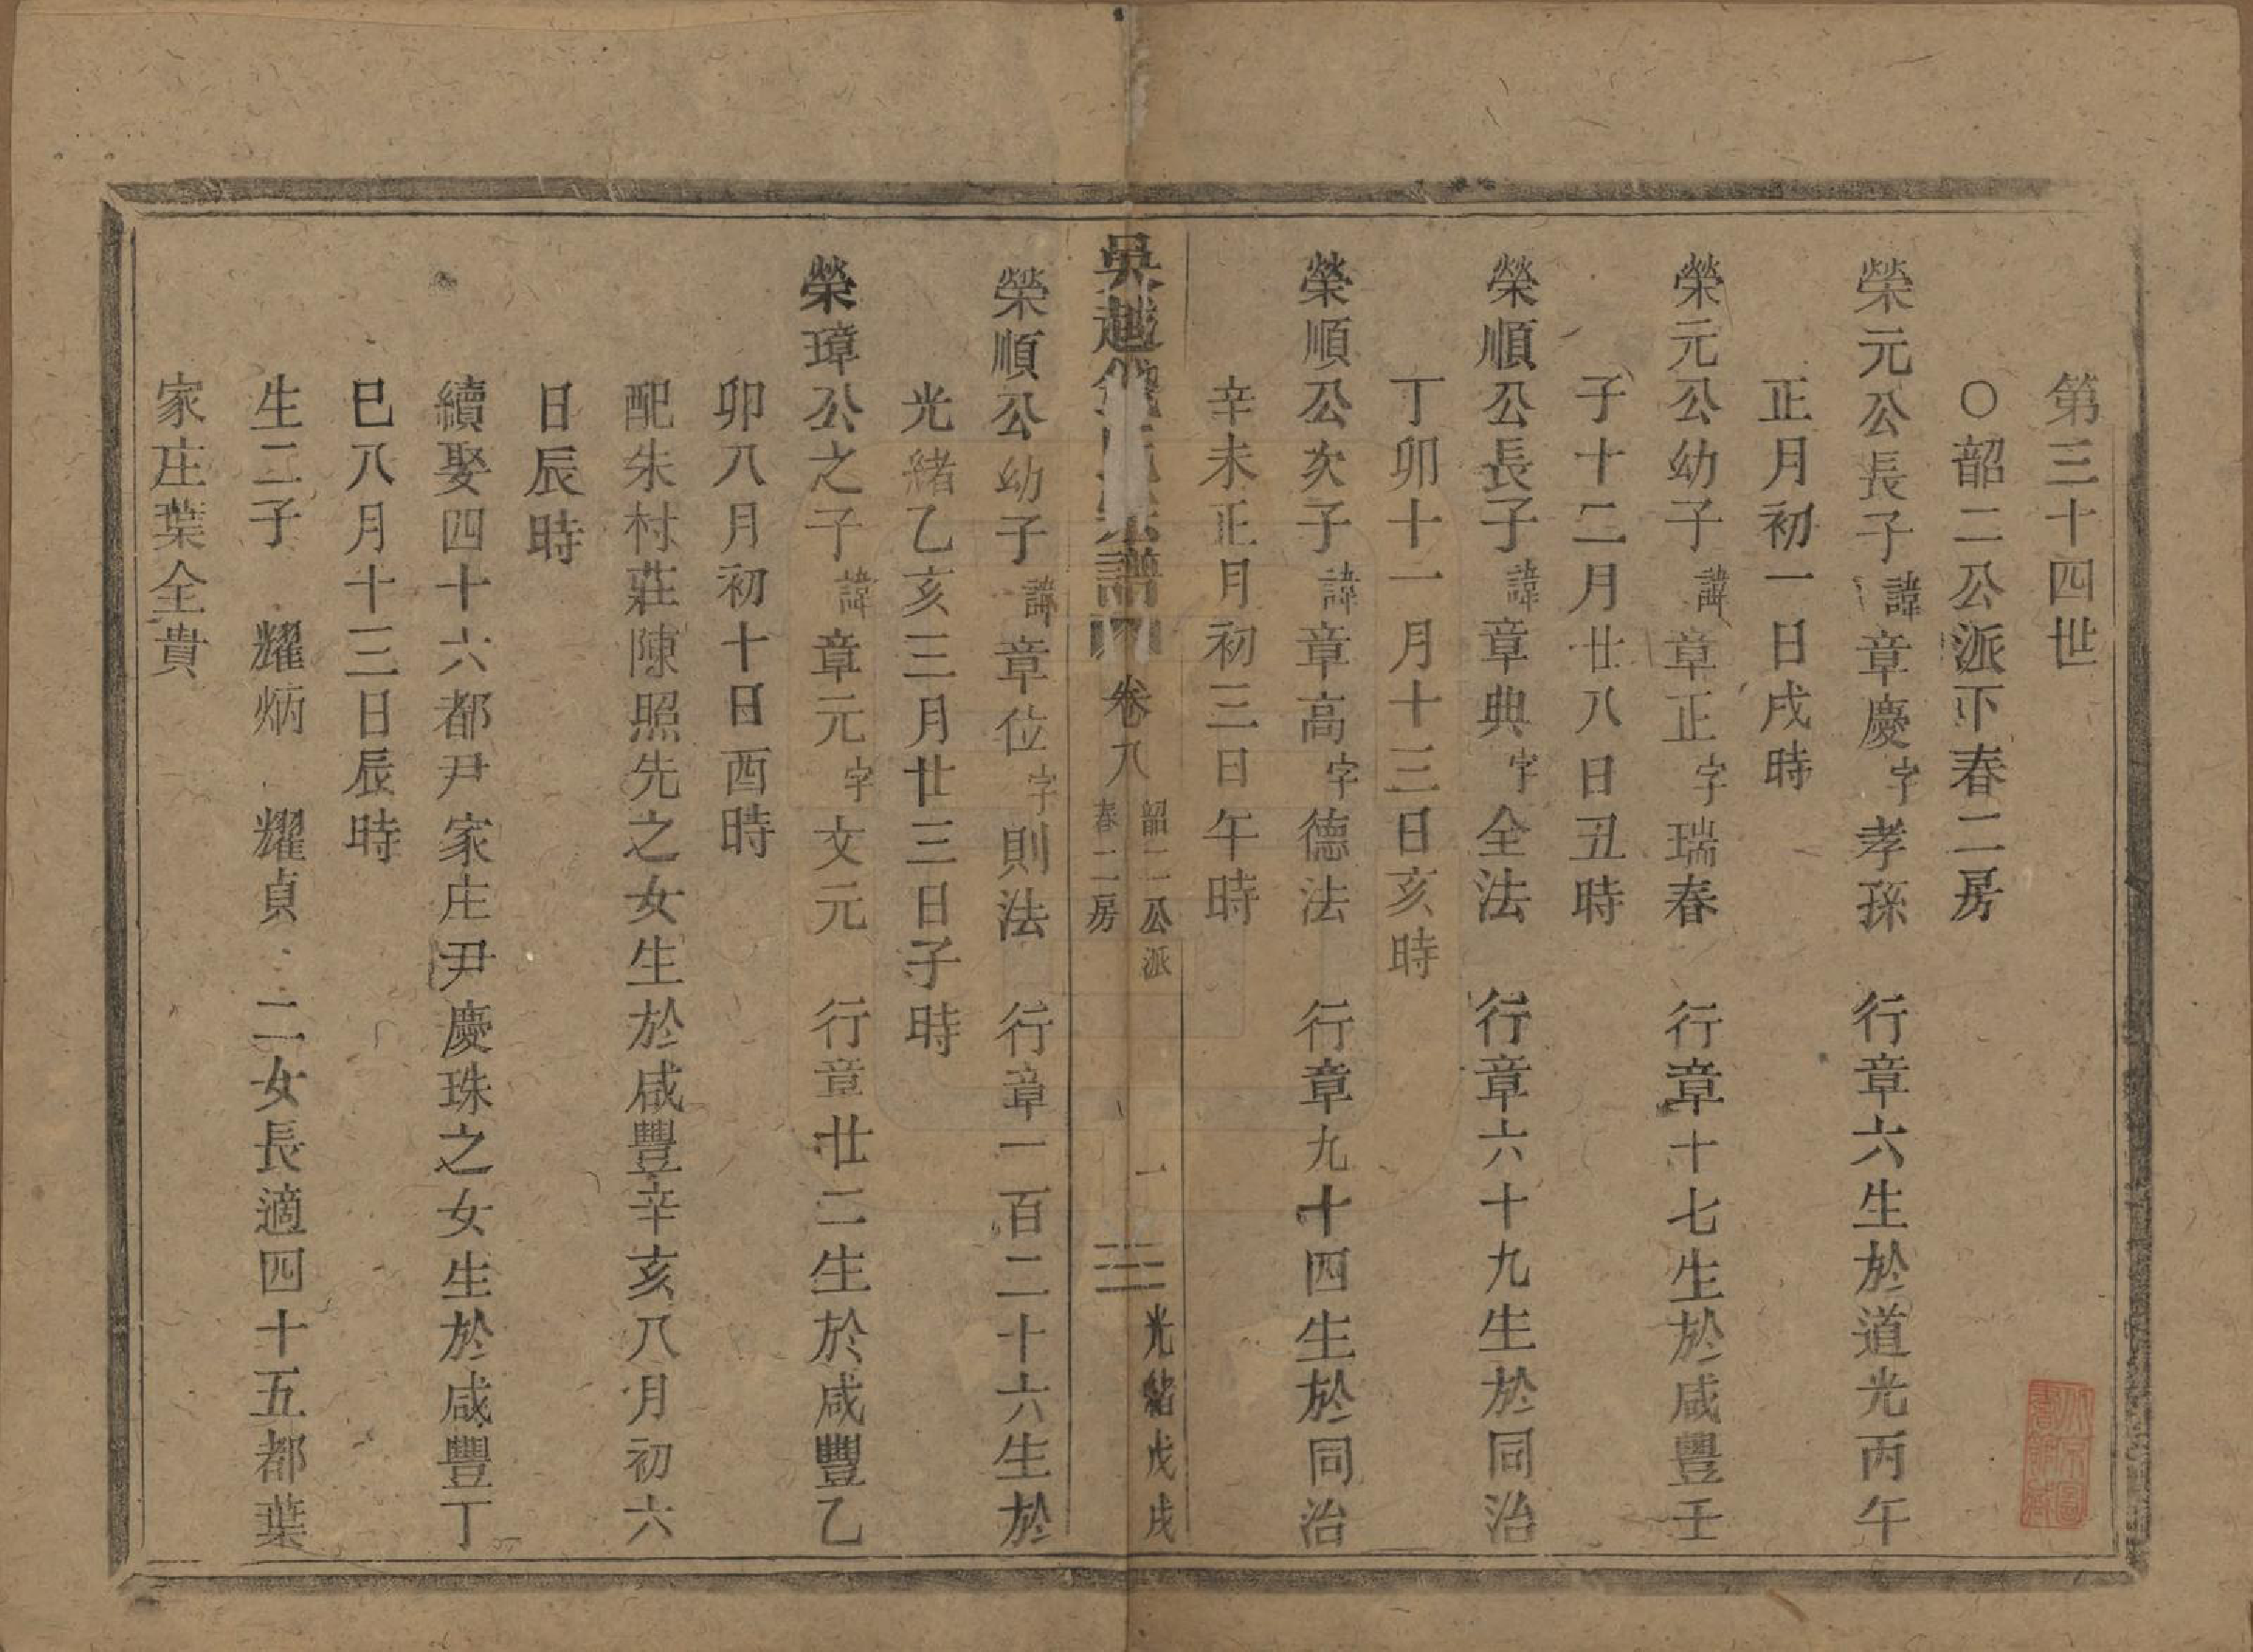 第三十四世
〇韶二公派下春二房
榮元公長子諱章慶字孝孫　行章六生於道光丙午
正月初一日戌時
榮元公幼子諱章正字瑞春　行章十七生於咸豐壬
子十二月廿八日丑時
榮順公長子諱章典字全法　行章六十九生於同治
丁卯十一月十三日亥時
榮順公次子諱章高字德法　行章九十四生於同治
辛未正月初三日午時
吳越錢氏宗譜　卷八　韶二公派　春二房　一　光緒戊戌
榮順公幼子諱章位字則法　行章一百二十六生於
光緒乙亥三月廿三日子時
榮璋公之子諱章元字文元　行章廿二生於咸豐乙
卯八月初十日酉時
配朱村莊陳照先之女生於咸豐辛亥八月初六
日辰時
續娶四十六都尹家庄尹慶珠之女生於咸豐丁
巳八月十三日辰時
生二子　耀炳　耀貞　二女長適四十五都葉
家庄葉全貴